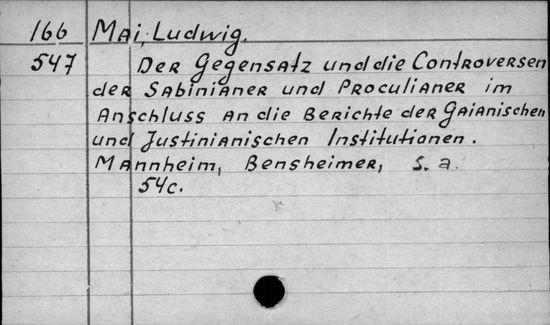 166 Mai, Ludwig.
547 Der Gegensatz und die Controversen
der Sabinianer und Proculianer im
Anschluss an die Berichte der Gaianischen
und Justinianischen Institutionen.
Mannheim, Bensheimer, s. a.
54c.